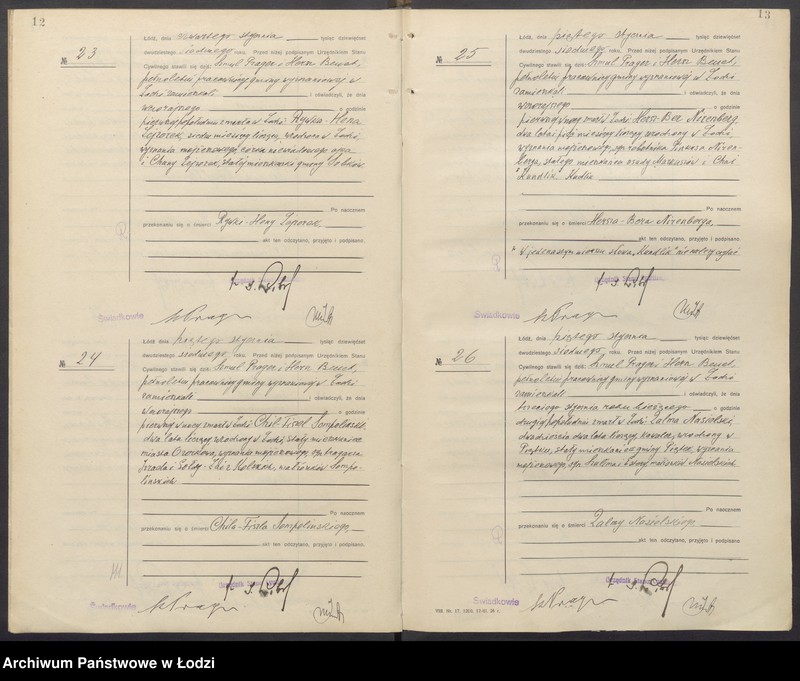 12
№ 23
Łódź, dnia czwartego stycznia tysiąc dziewięćset
dwudziestego siódmego roku. Przed niżej podpisanym Urzędnikiem Stanu
Cywilnego stawili się dwaj: Szmul Prager i Hersz Bewat,
pełnoletni pracownicy gminy wyznaniowej w
Łodzi zamieszkali i oświadczyli, że dnia
wczorajszego o godzinie
pierwszej popołudniu zmarła w Łodzi Ryfka-Hena
Toporek, siedm miesięcy licząca, urodzona w Łodzi,
wyznania mojżeszowego, córka niewiadomego ojca
i Chany Toporek, stałej mieszkanki gminy
Po naocznem
przekonaniu się o śmierci Ryfki-Heny Toporek
akt ten odczytano, przyjęto i podpisano
Świadkowie
№ 24
Łódź, dnia piątego stycznia tysiąc dziewięćset
dwudziestego siódmego roku. Przed niżej podpisanym Urzędnikiem Stanu
Cywilnego stawili się dwaj: Szmul Prager i Hersz Bewat,
pełnoletni pracownicy gminy wyznaniowej w Łodzi
zamieszkali i oświadczyli, że dnia
wczorajszego o godzinie
pierwszej w nocy zmarł w Łodzi Chil-Fiszel Sompoliński,
dwa lata liczący, urodzony w Łodzi, stały mieszkaniec
miasta Ozorkowa, wyznania mojżeszowego, syn
Izraela i małżonków Sompo-
lińskich
Po naocznem
przekonaniu się o śmierci Chila-Fiszla Sompolińskiego
akt ten odczytano, przyjęto i podpisano
Świadkowie
13
№ 25
Łódź, dnia piątego stycznia tysiąc dziewięćset
dwudziestego siódmego roku. Przed niżej podpisanym Urzędnikiem Stanu
Cywilnego stawili się dwaj: Szmul Prager i Hersz Bewat,
pełnoletni pracownicy gminy wyznaniowej w Łodzi
zamieszkali i oświadczyli, że dnia
wczorajszego o godzinie
pierwszej w nocy zmarł w Łodzi Hersz-Ber Nirenberg,
dwa lata pięć miesięcy liczący, urodzony w Łodzi,
wyznania mojżeszowego, syn robotnika Pinkusa Niren-
berga, stałego mieszkańca osady i
"Kandlik" Kudlik
Po naocznem
przekonaniu się o śmierci Hersza-Bera Nirenberga
akt ten odczytano, przyjęto i podpisano
W jedenastym wierszu słowa "Kandlik" nie należy czytać
Świadkowie
№ 26
Łódź, dnia piątego stycznia tysiąc dziewięćset
dwudziestego siódmego roku. Przed niżej podpisanym Urzędnikiem Stanu
Cywilnego stawili się dwaj: Szmul Prager i Hersz Bewat,
pełnoletni pracownicy gminy wyznaniowej w Łodzi
zamieszkali i oświadczyli, że dnia
trzeciego stycznia roku bieżącego o godzinie
drugiej popołudniu zmarł w Łodzi Zalma Nasielski,
dwadzieścia dwa lata liczący, kawaler, urodzony w
Piątku, stały mieszkaniec gminy Piątek, wyznania
mojżeszowego, syn i małżonków Nasielskich
Po naocznem
przekonaniu się o śmierci Zalmy Nasielskiego
akt ten odczytano, przyjęto i podpisano
Urzędnik Stanu
Świadkowie
Archiwum Państwowe w Łodzi